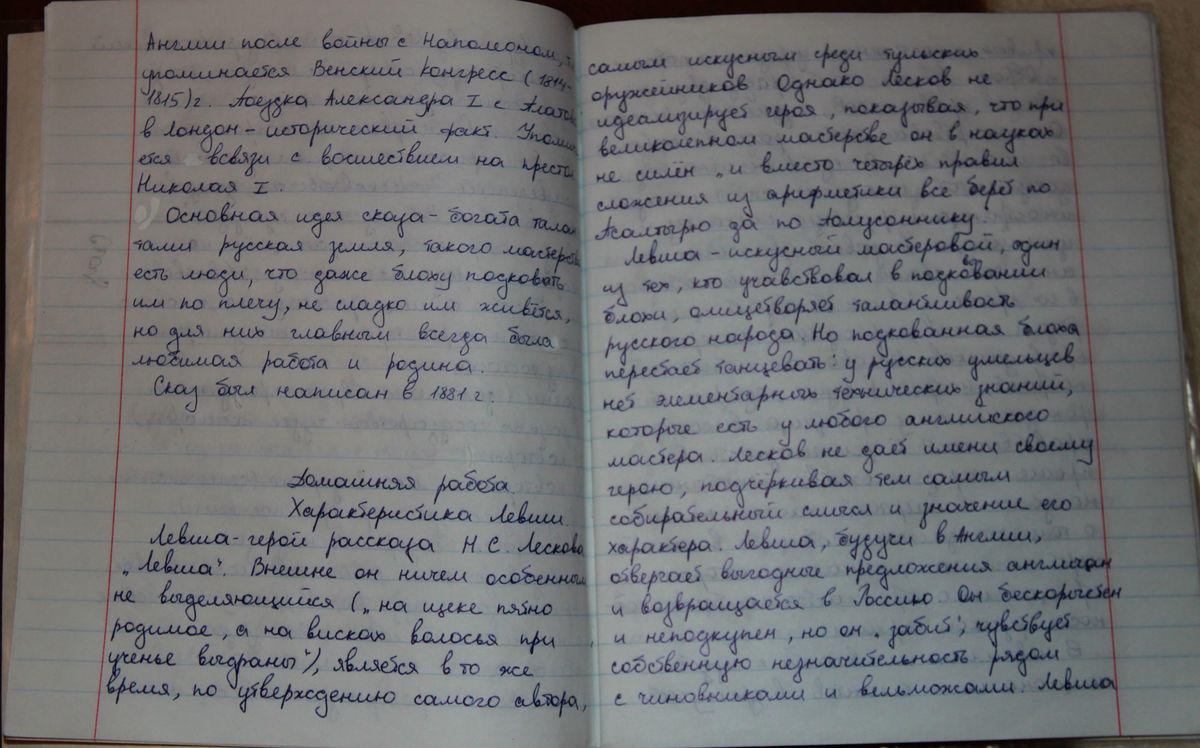 Англии после войны с Наполеоном,
упоминается Венский конгресс (1814-
1815)г. Поездка Александра I с Плато
в Лондон - исторический факт. Упоми
ется всвязи с восшествием на престол
Николая I.
Основная идея сказа - богата талан
тами русская земля, такого мастерства
есть люди, что даже блоху подковать
им по плечу, не сладко им живётся,
но для них главным всегда была
любимая работа и родина.
Сказ был написан в 1881 г.
Домашняя работа.
Характеристика Левши.
Левша - герой рассказа Н.С. Лескова
„Левша". Внешне он ничем особенным
не выделяющийся („на щеке пятно
родимое, а на висках волосья при
ученье выдраны"), является в то же
время, по утверждению самого автора,
самым искусным среди тульских
оружейников Однако Лесков не
идеализирует героя, показывая, что при
великолепном мастерстве он в науках
не силён „и вместо четырёх правил
сложения из арифметики все берет по
Псалтырю да по Полусоннику.
Левша - искусный мастеровой, один
из тех, кто учавствовал в подковании
блохи, олицетворяет талантливость
русского народа. Но подкованная блоха
перестает танцевать: у русских умельцев
нет элементарных технических знаний,
которые есть у любого английского
мастера. Лесков не дает имени своему
герою, подчёркивая тем самым
собирательный смысл и значение его
характера. Левша, будучи в Англии,
отвергает выгодные предложения англичан
и возвращается в Россию. Он бескорыстен
и неподкупен, но он „забит", чувствует
собственную незначительность рядом
с чиновниками и вельможами. Левша